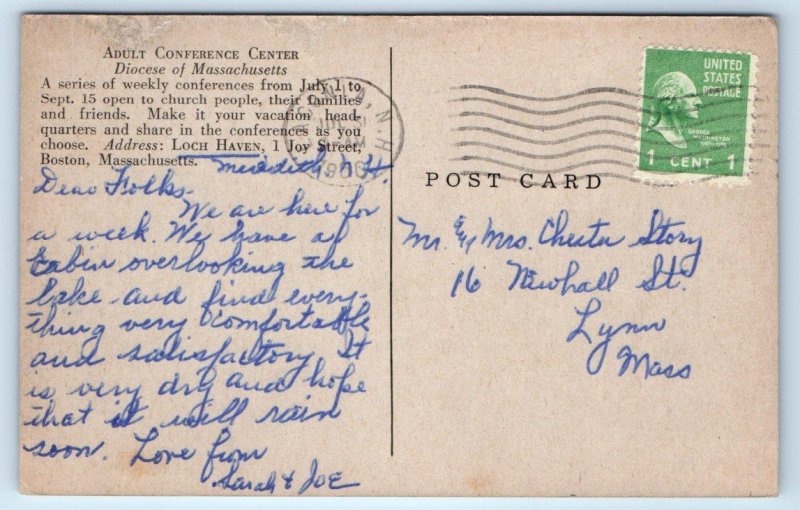 ADULT CONFERENCE CENTER
Diocese of Massachusetts
A series of weekly conferences from July 1 to
Sept. 15 open to church people, their families
and friends. Make it your vacation head-
quarters and share in the conferences as you
choose. Address: LOCH HAVEN, 1 Joy Street,
Boston, Massachusetts.
Meredith N H.
Dear Folks-
We are here for
a week. We have a
cabin overlooking the
lake and find every-
thing very comfortable
and satisfactory. It
is very dry and hope
that it will rain
soon. Love from
Sarah & JOE
N.H.
UNITED
STATES
POSTAGE
GEORGE
WASHINGTON
1 CENT 1
POST CARD
Mr. & Mrs. Chester Story
16 Newhall St.
Lynn
Mass